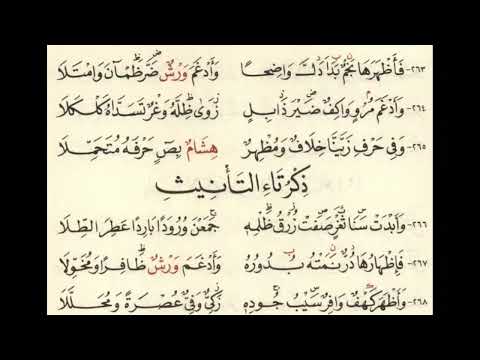 ٢٦٣- فَأَظْهَرَهَا نَجْمٌ بَدَا دَلَّ وَاضِحًا وَأَدْغَمَ وَرْشٌ ضَرَّ ظَمْآنَ وَامْتَلَا
٢٦٤- وَأَدْغَمَ مُرْوٍ وَاكِفٌ ضَيْرَ ذَابِلٍ زَوَى ظِلَّهُ وَغْرٌ تَسَدَّاهُ كَلْكَلَا
٢٦٥- وَفِي حَرْفِ زَيَّنَّا خِلَافٌ وَمُظْهِرٌ هِشَامٌ بِصٍ حَرْفَهُ مُتَحَمِّلَا
ذِكْرُ تَاءِ التَّأْنِيثِ
٢٦٦- وَأَبْدَتْ سَنَا ثَغْرٍ صَفَتْ زُرْقُ ظَلْمِهِ جَمَعْنَ وُرُودًا بَارِدًا عَطِرَ الطِّلَا
٢٦٧- فَإِظْهَارُهَا دُرٌّ نَمَتْهُ بُدُورُهُ وَأَدْغَمَ وَرْشٌ ظَافِرًا وَمُخَوِّلَا
٢٦٨- وَأَظْهَرَ كَهْفٌ وَافِرٌ سَيْبُ جُودِهِ زَكِيٌّ وَفِيٌّ عُصْرَةً وَمُحَلَّلَا